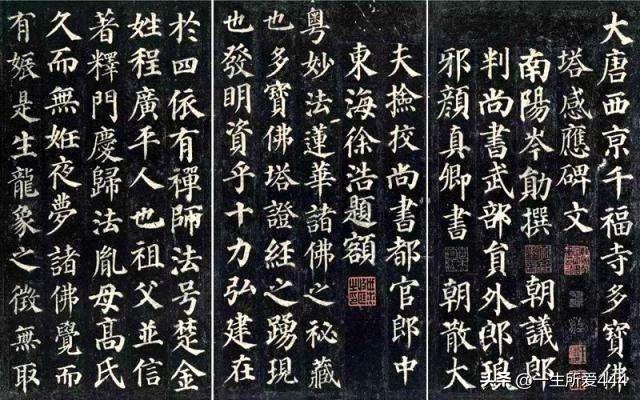 大唐西京千福寺多寶佛
塔感應碑文
南陽岑勛撰 朝議郎
判尚書武部員外郎琅
邪顏真卿書 朝散大
夫撿挍尚書都官郎中
東海徐浩題額
粵妙法蓮華諸佛之秘藏
也多寶佛塔證經之踴現
也發明資乎十力弘建在
於四依有禪師法号楚金
姓程廣平人也祖父並信
著釋門慶歸法胤母髙氏
久而無姙夜夢諸佛覺而
有娠是生龍象之徵無取
头条 @一生所爱444